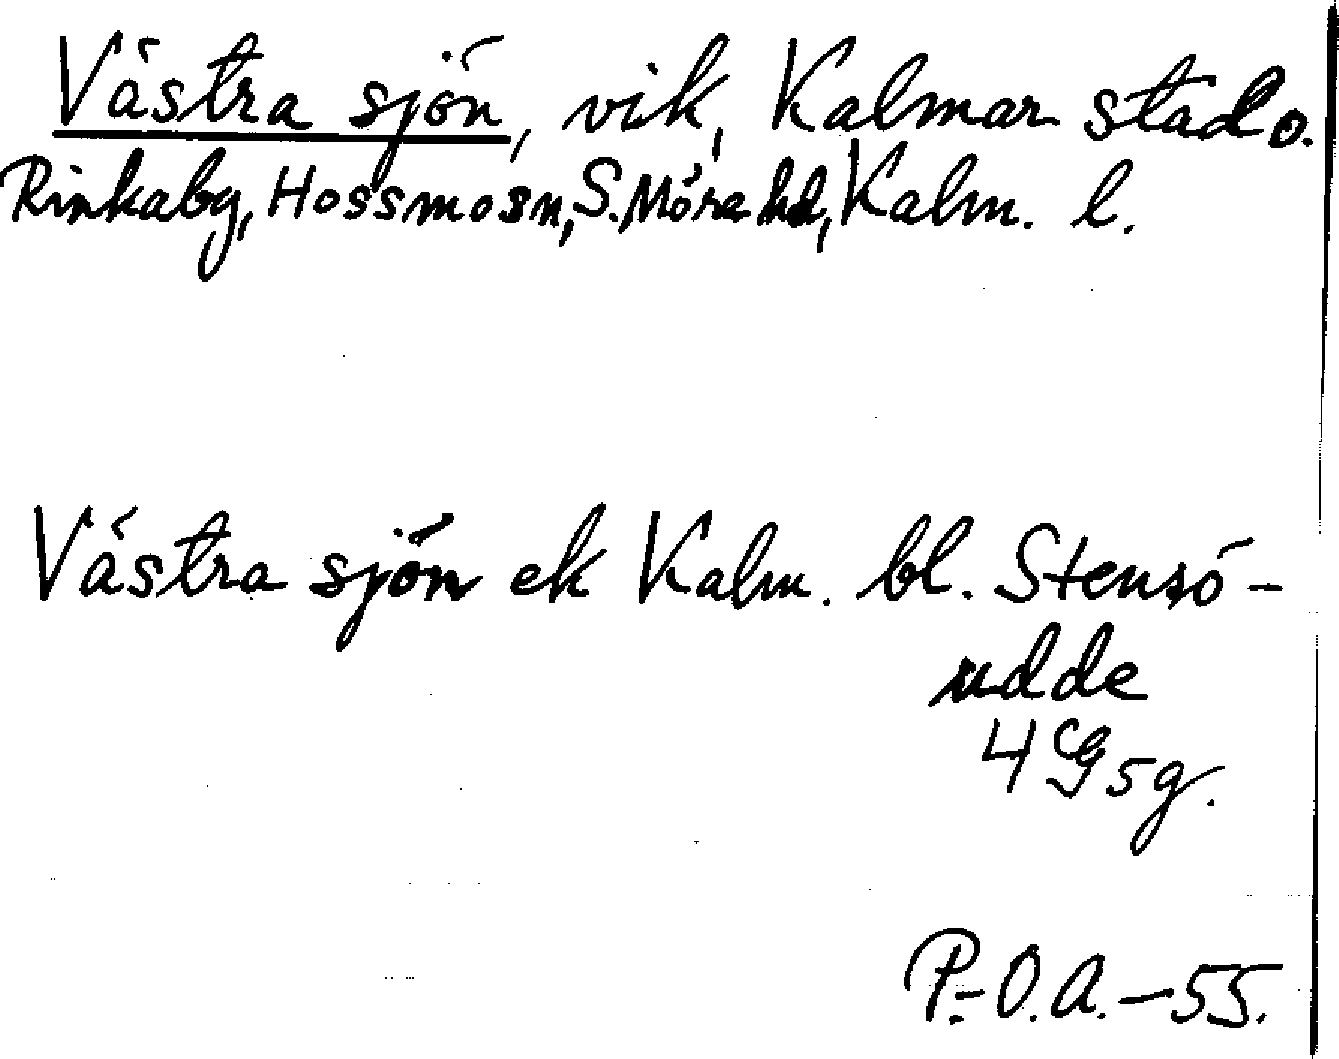 Västra sjön, vik, Kalmar stad o.
Rinkaby, Hossmo sn, S. Möre hd, Kalm. l.
Västra sjön ek Kalm. bl. Stensö-
udde
4G5g.
P.-O.A.-55.